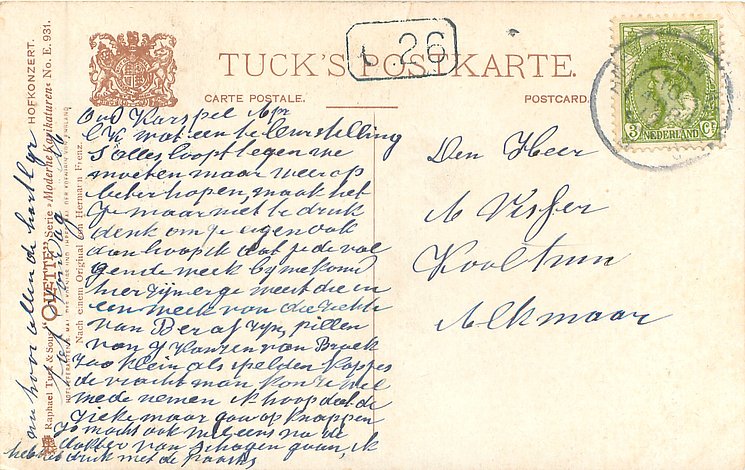 TUCK'S POSTKARTE.
CARTE POSTALE.
POSTCARD
26
3 Ct
NEDERLAND
HOFKONZERT.
Raphael Tuck & Sons' "OILETTE" Serie »Moderne Karikaturen« No. E. 931.
Nach einem Original von Hermann Frenz.
Oud Karspel
wat een te leurstelling
alles loopt tegen we
moeten maar weer op
beter hopen, maak het
Je maar niet te druk
denk om je eigen ook
dan hoop ik dat je de vol
gende week by me komt
hier zyn er geweest die in
een week van die ziekte
van Der af zyn, pillen
van J Hanzen van Broek
zoo klein als spelden koppes
de vracht man kon ze wel
mede nemen ik hoop dat de
zieke maar gauw op knappen
Je mocht ook wel eens na de
dokter van Schagen gaan, ik
heb het druk met de
nu voor allen de hartl gr
Den Heer
A Visser
Kooltuin
Alkmaar